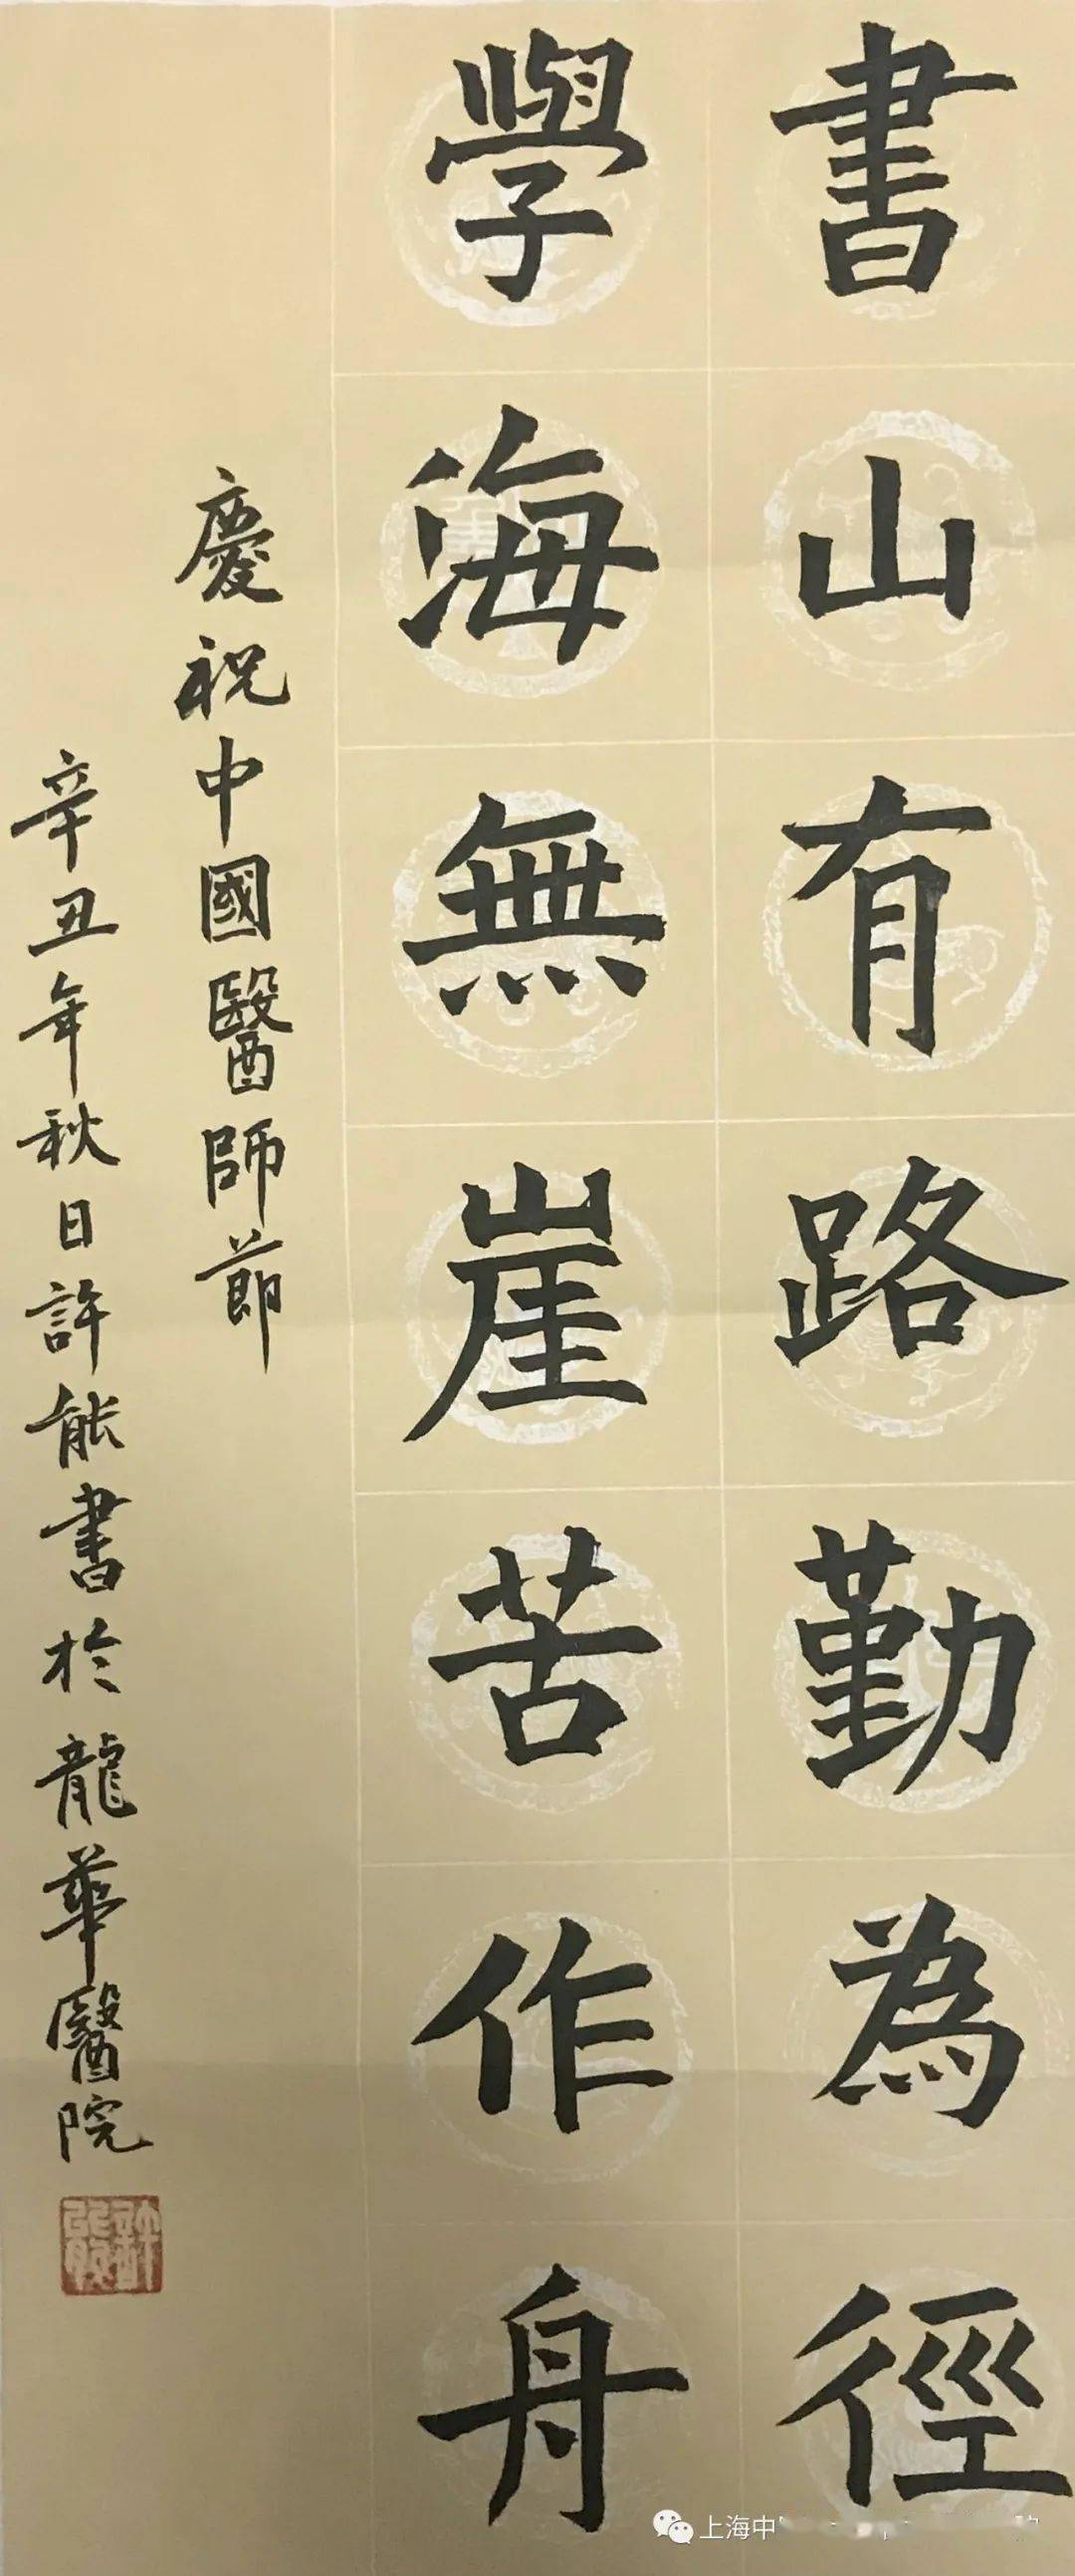 書山有路勤為徑
學海無崖苦作舟
慶祝中國醫師節
辛丑年秋日許能書於龍華醫院
上海中